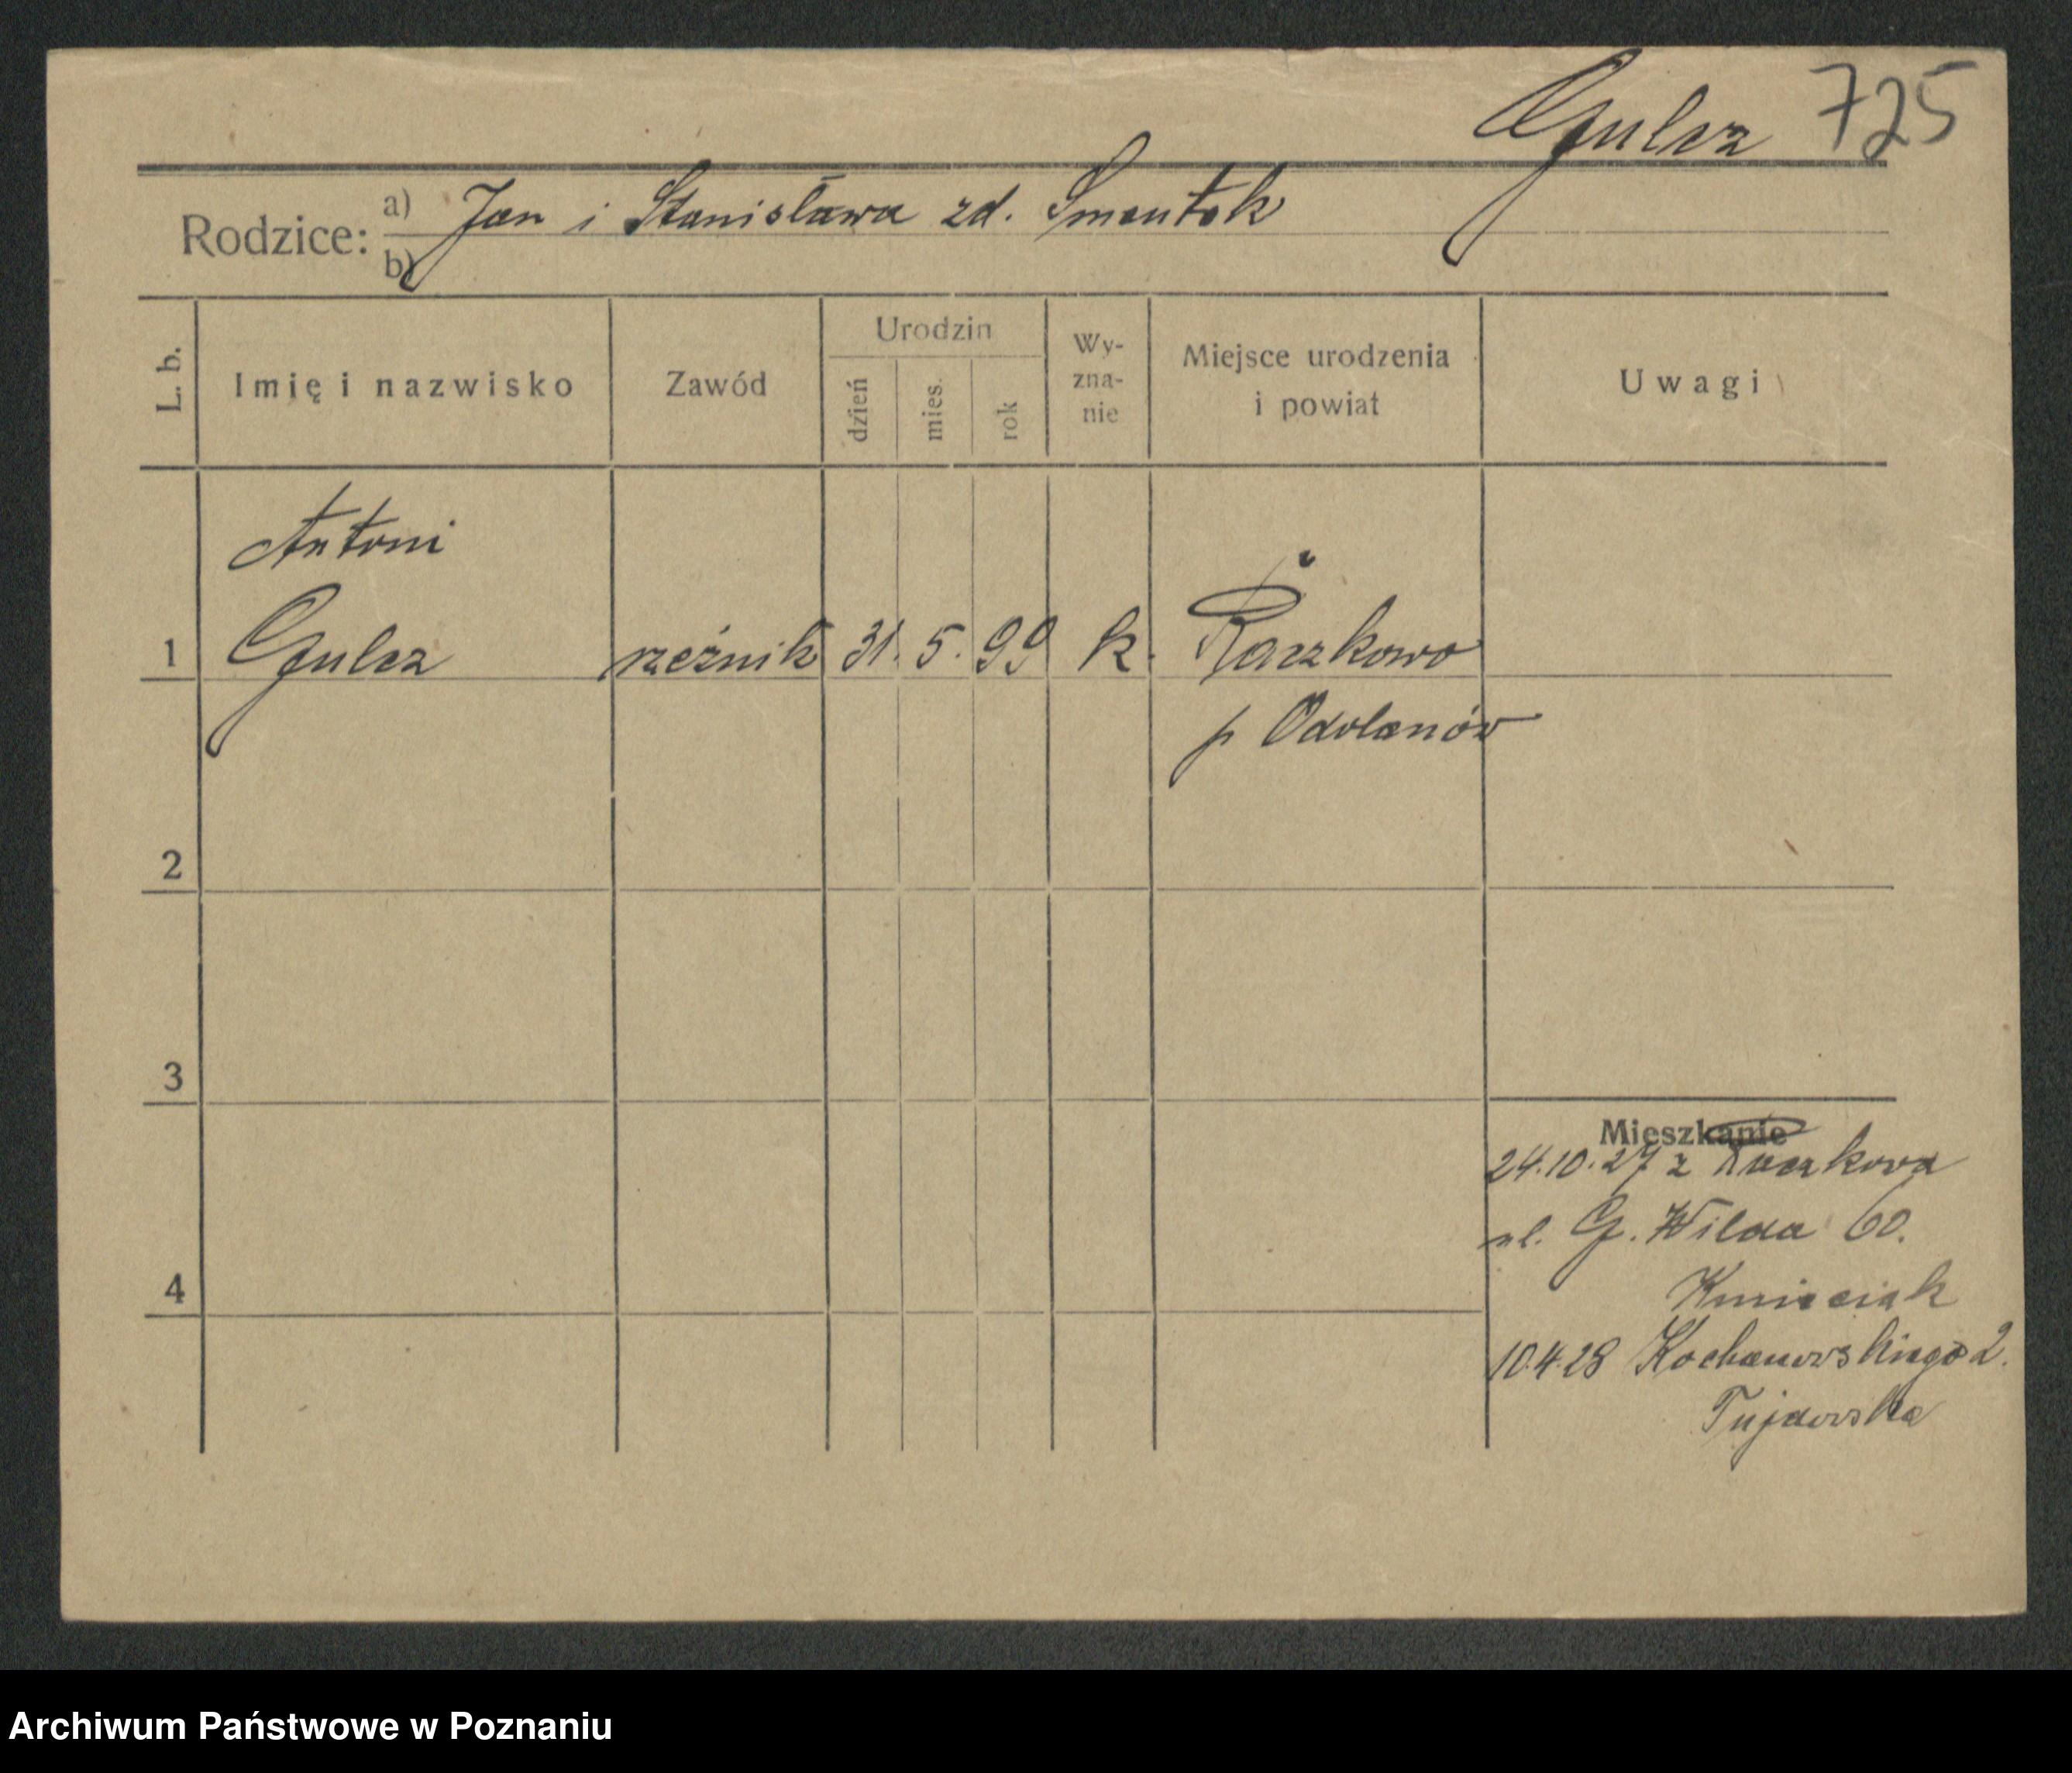 Gulcz 725
Rodzice: a) Jan i Stanisława zd. Smentek
b)
L. b.
Imię i nazwisko
Zawód
Urodzin
dzień
mies.
rok
Wy-
zna-
nie
Miejsce urodzenia
i powiat
Uwagi
Antoni
1 Gulcz rzeźnik 31. 5. 99 k. Raczkowo
p Odolanów
2
3
4
Mieszkanie
24.10.27 z Raczkowa
ul. G. Wilda 60.
Kmieciak
10.4.28 Kochanowskiego 2.
Tujawska
Archiwum Państwowe w Poznaniu